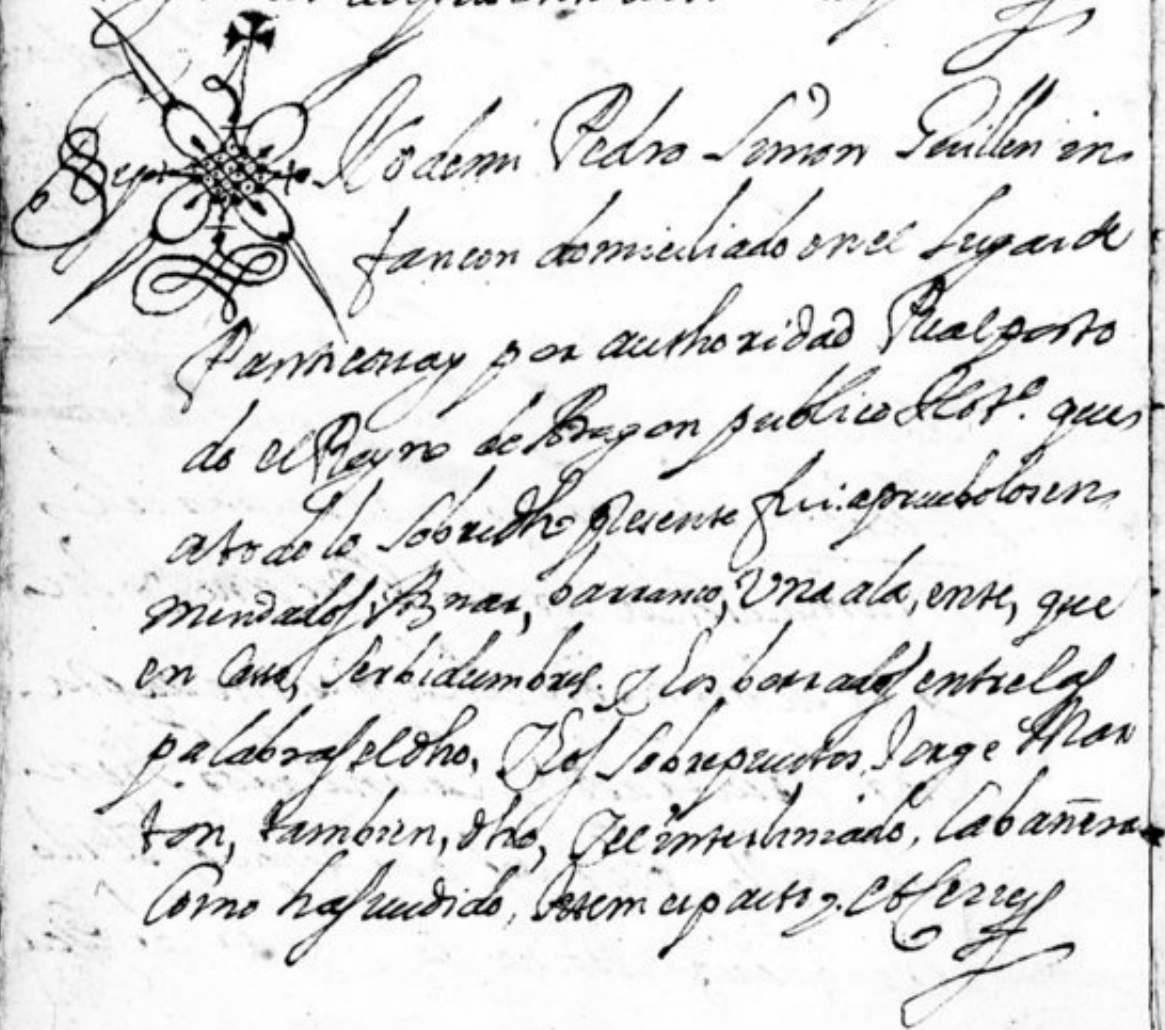 Sig✠no de mi Pedro Simon Guillen in
fancon domiciliado en el Lugar de
Panticossa y por authoridad Real por to
do el Reyno de Aragon publico Not.º que
a todo lo sobredho presente fui: apruebo los en
mendados, Aznar, barranco, Una ala, ente, que
en Cassa, serbidumbres. Y los borrados entre las
palabras el dho, Y los sobrepuestos, Jorge Mar
ton, tambien, dho, Y el interliniado, Cabañera
Como ha sucedido, et cerre